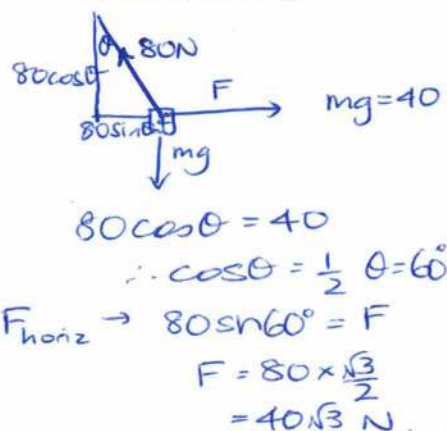 θ 80N
80cosθ
F
mg=40
80sinθ
mg
80cosθ = 40
∴ cosθ = 1/2 θ=60°
Fhoriz → 80sn60° = F
F = 80 × √3/2
= 40√3 N.